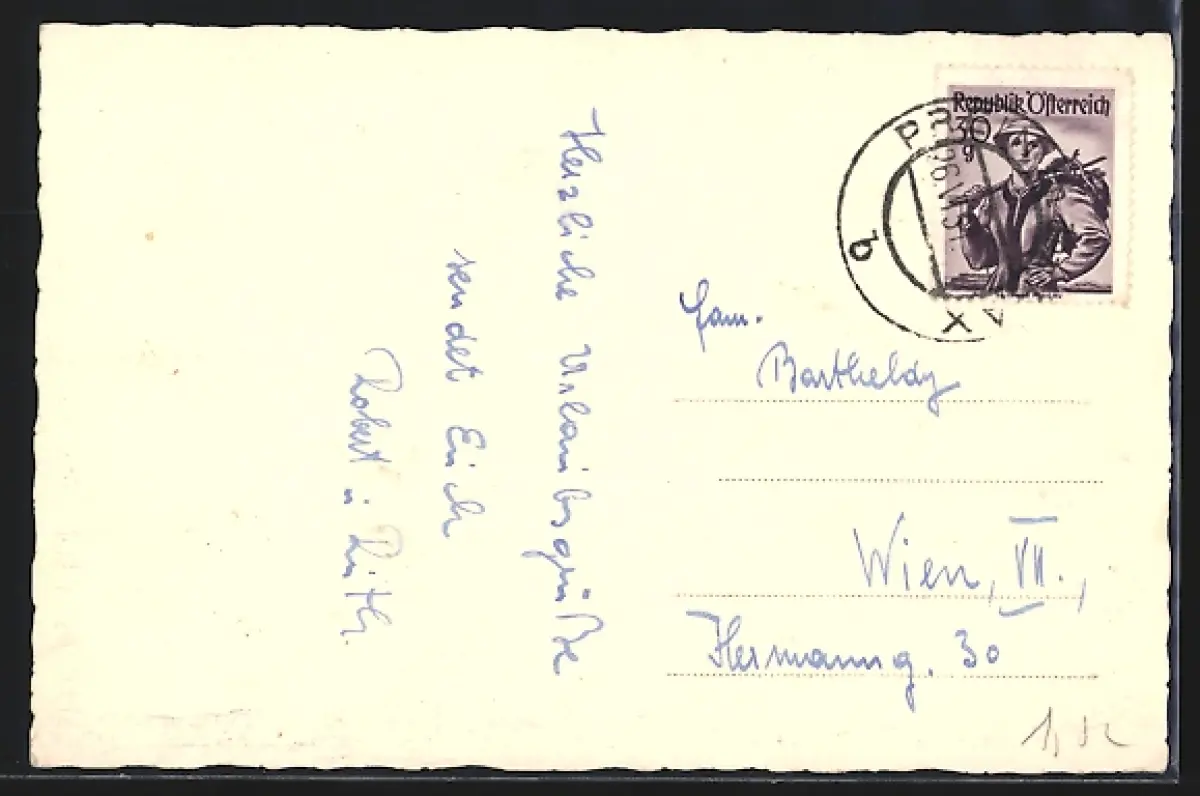 Herzliche Urlaubsgrüße
sendet Euch
Robert u. Ruth.
Republik Österreich
30
g
Fam.
Bartheldy
Wien, VII.,
Hermanng. 30
b
XV